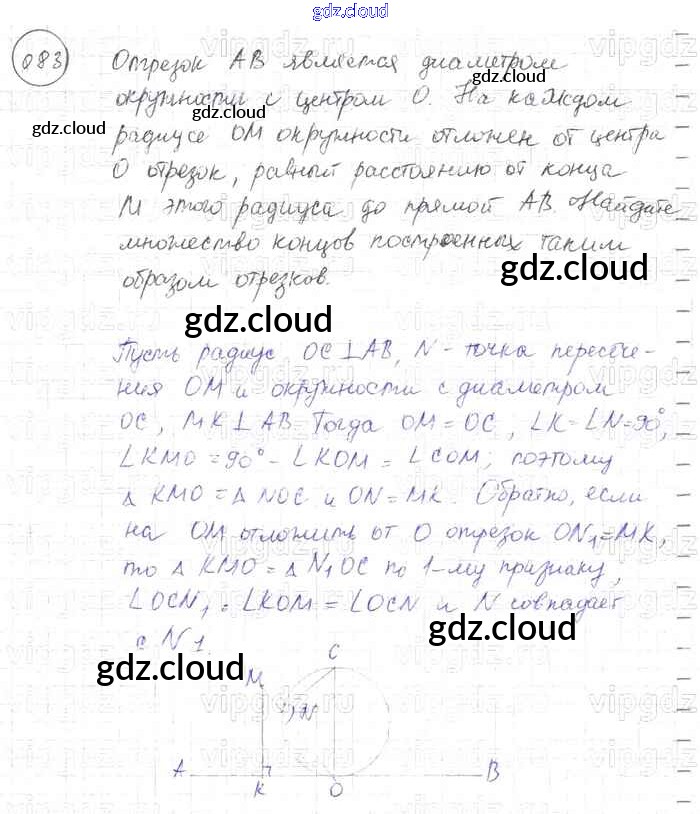 gdz.cloud
083 Отрезок AB является диаметром
gdz.cloud
окружности с центром O. На каждом
gdz.cloud
радиусе OM окружности отложен от центра
O отрезок, равный расстоянию от конца
M этого радиуса до прямой AB. Найдите
множество концов построенных таким
образом отрезков.
gdz.cloud
gdz.cloud
Пусть радиус OC⊥AB, N - точка пересече-
ния OM и окружности с диаметром
OC, MK⊥AB. Тогда OM=OC, ∠K=∠N=90°,
∠KMO=90°-∠KOM=∠COM; поэтому
△KMO=△NOC и ON=MK. Обратно, если
на OM отложить от O отрезок ON₁=MK,
то △KMO=△N₁OC по 1-му признаку,
∠OCN₁=∠KOM=∠OCN и N совпадает
с N1.
gdz.cloud
gdz.cloud
C
M
N
A K O B
gdz.cloud